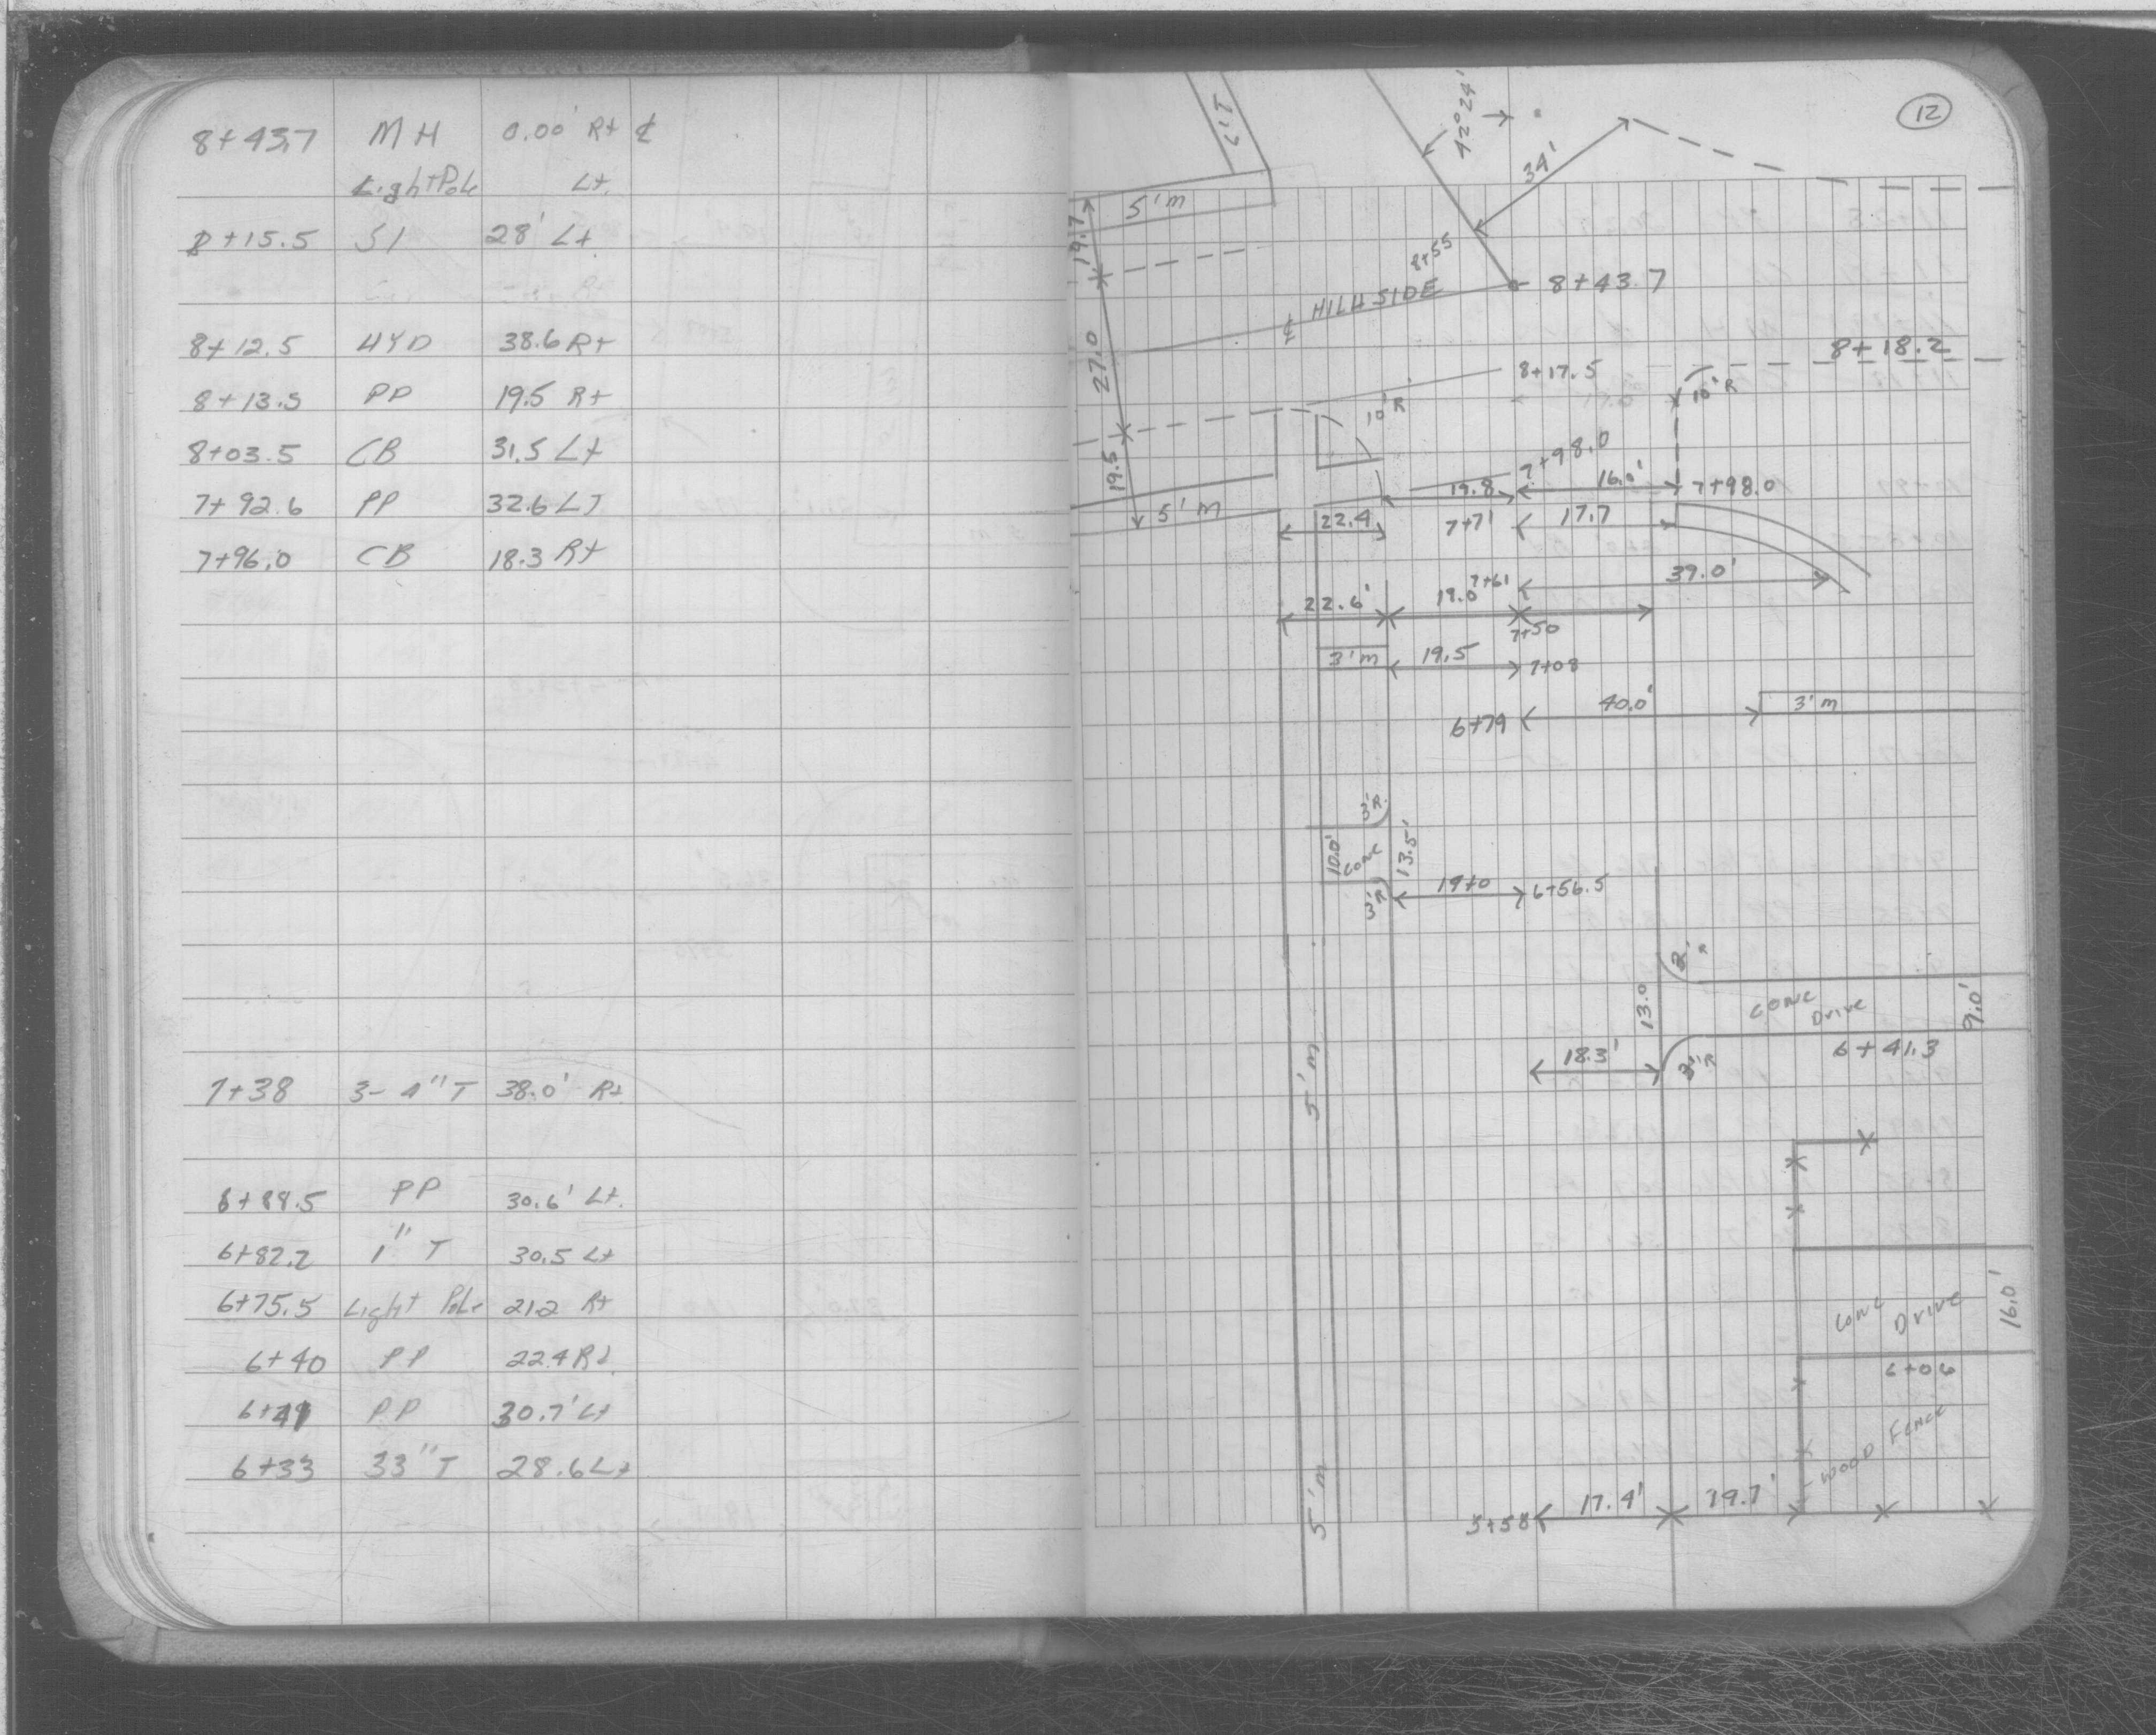 8+43.7 MH 0.00' Rt ℄
Light Pole Lt.
8+15.5 SI 28' Lt
8+12.5 HYD 38.6 Rt
8+13.5 PP 19.5 Rt
8+03.5 CB 31.5 Lt
7+92.6 PP 32.6 LT
7+96.0 CB 18.3 Rt
7+38 3-4"T 38.0' Rt
6+88.5 PP 30.6' Lt.
6+82.2 1" T 30.5 Lt
6+75.5 Light Pole 21.2 Rt
6+40 PP 22.4 Rt
PP 30.7' Lt
6+33 33"T 28.6 Lt
12
42°24'
34'
5'm
19.7
8+55
HILLSIDE
℄
8+43.7
27.0
8+18.2
8+17.5
10'R
10'R
19.5
7+98.0
19.8
16.0'
7+98.0
5'm
22.4
7+71
17.7
39.0'
22.6'
19.0'
7+61
7+50
3'm
19.5
7+08
40.0'
3'm
6+79
3'R.
10.0'
CONC
13.5'
3'R
19+0
6+56.5
13.0
CONC Drive
9.0'
18.3'
3'R
6+41.3
5'm
CONC DRIVE
16.0'
6+06
WOOD FENCE
5'm
5+58
17.4'
19.7'